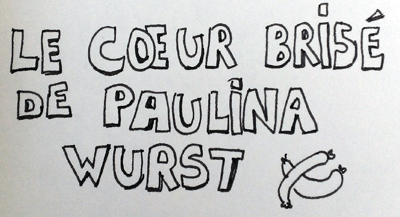 LE CŒUR BRISÉ
DE PAULINA
WURST